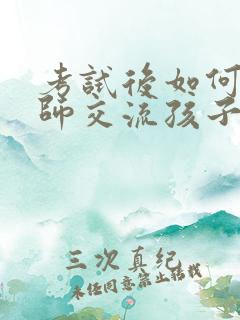 考試後如何
師交流孩子
三次真紀
未经同意禁止转载